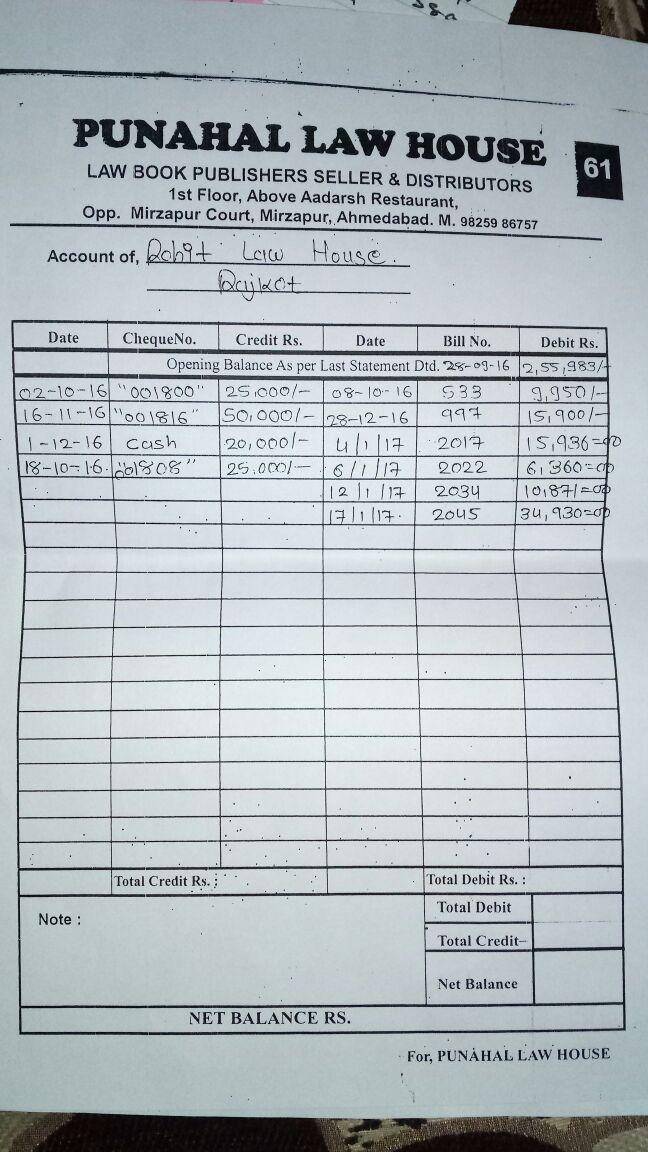 PUNAHAL LAW HOUSE
61
LAW BOOK PUBLISHERS SELLER & DISTRIBUTORS
1st Floor, Above Aadarsh Restaurant,
Opp. Mirzapur Court, Mirzapur, Ahmedabad. M. 98259 86757
Account of, Rohit Law House.
Rajkot
Date ChequeNo. Credit Rs. Date Bill No. Debit Rs.
Opening Balance As per Last Statement Dtd. 28-09-16 2,55,983/-
02-10-16 "001800" 25,000/- 08-10-16 533 9,950/-
16-11-16 "001816" 50,000/- 28-12-16 997 15,900/-
1-12-16 cash 20,000/- 4/1/17 2017 15,936=00
18-10-16. "001808" 25,000/- 6/1/17 2022 6,360=00
12/1/17 2034 10,871=00
17/1/17. 2045 34,930=00
Total Credit Rs. : Total Debit Rs. :
Note :
Total Debit
Total Credit-
Net Balance
NET BALANCE RS.
For, PUNAHAL LAW HOUSE